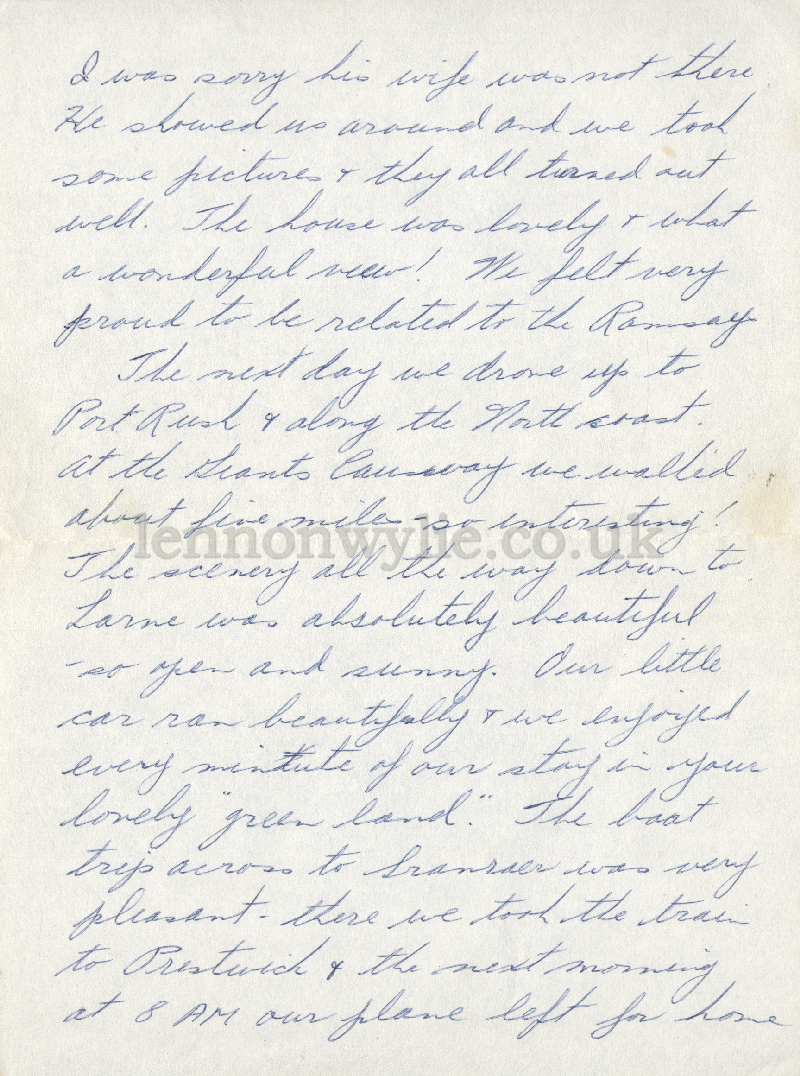 I was sorry his wife was not there
He showed us around and we took
some pictures & they all turned out
well. The house was lovely & what
a wonderful view! We felt very
proud to be related to the Ramsays
The next day we drove up to
Port Rush & along the North coast.
At the Giants Causeway we walked
about five miles - so interesting!
lennonwylie.co.uk
The scenery all the way down to
Larne was absolutely beautiful
- so open and sunny. Our little
car ran beautifully & we enjoyed
every mintute of our stay in your
lovely "green land." The boat
trip across to Sranraer was very
pleasant - there we took the train
to Prestwich & the next morning
at 8 AM our plane left for home